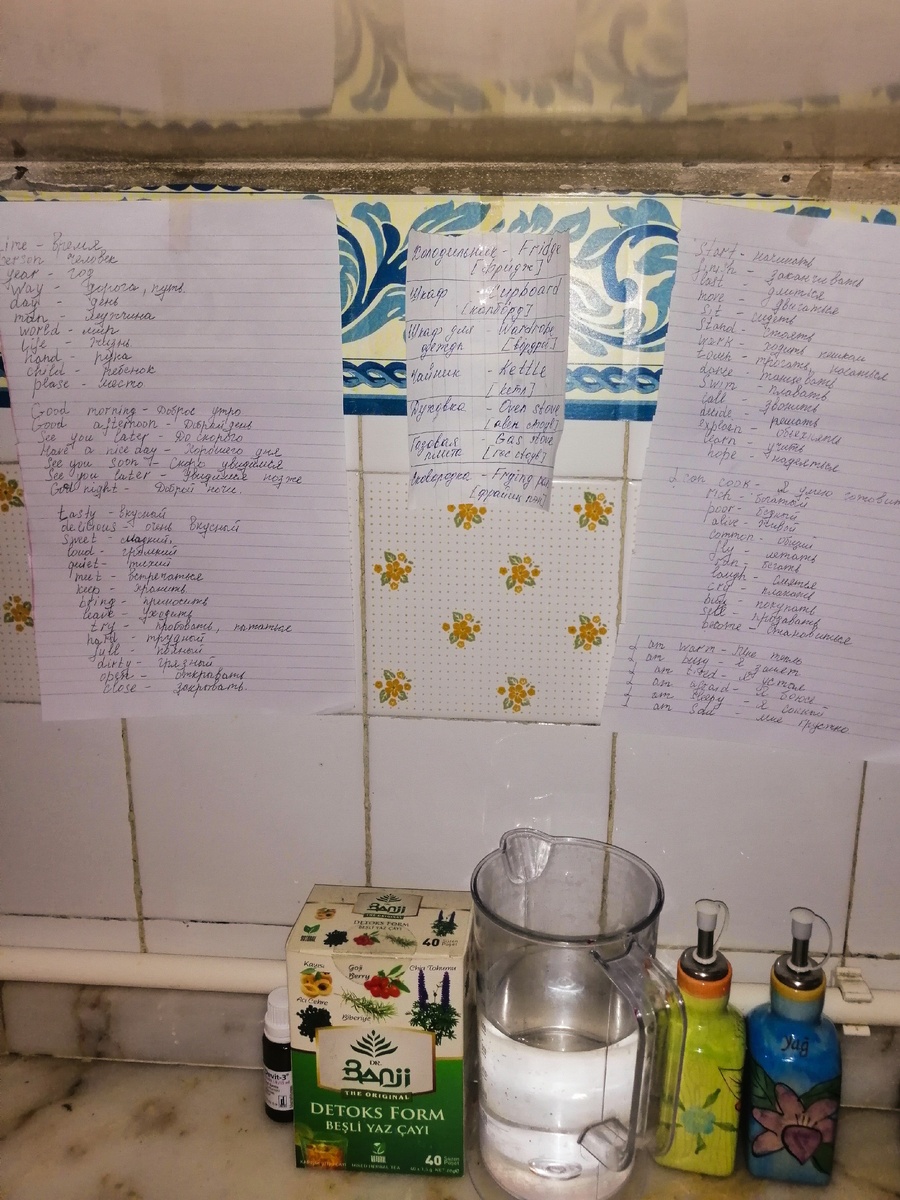 ime - Время
erson человек
year - год
way - дорога, путь
day - день
man - мужчина
world - мир
life - жизнь
hand - рука
child - ребёнок
plase - место
Good morning - Доброе утро
Good afternoon - Добрый день
See you later - До скорого
Have a nice day - Хорошего дня
See you soon - Скоро увидимся
See you later Увидимся позже
Good night - Доброй ночи.
tasty - вкусной
delicious - очень вкусной
sweet - сладкий.
loud - громкий
quiet - тихий
meet - встречаться
keep - хранить
bring - приносить
leave - уходить
try - пробовать, пытаться
hard - трудной
full - полный
dirty - грязный
open - открывать
close - закрывать.
Холодильник - Fridge
[фридж]
Шкаф - Cupboard
[капбёрд]
Шкаф для - Wardrobe
одежды
Чайник - Kettle
[кетл]
Духовка - Oven stove
[авен стоув]
Газовая - Gas stove
плита [гэс стоув]
Сковородка - Frying pan
[фраинц пэн]
Start - начинать
finish - заканчивать
last - длиться
move - двигаться
Sit - сидеть
Stand - стоять
walk - ходить пешком
touch - трогать, касаться
danse - танцевать
Swim - плавать
call - звонить
deside - решать
explain - объяснять
learn - учить
hope - надеяться
I can cook - Я умею готовить
rich - богатой
poor - бедный
alive - живой
common - общий
fly - летать
run - бегать
laugh - смеяться
cry - плакать
buy - покупать
sell - продавать
become - становиться
I am warm - Мне тепло
I am busy - Я занят
I am tired - Я устал
I am afraid - Я боюсь
I am sleepy - Я сонный
I am sad - мне грустно
DR.
Banji
THE ORIGINAL
DETOKS FORM
BEŞLİ YAZ ÇAYI
40
Kayısı
Goji Berry
Chia Tohumu
Acı Çehre
Biberiye
DR.
Banji
THE ORIGINAL
DETOKS FORM
BEŞLİ YAZ ÇAYI
MIXED HERBAL TEA
40
Yağ